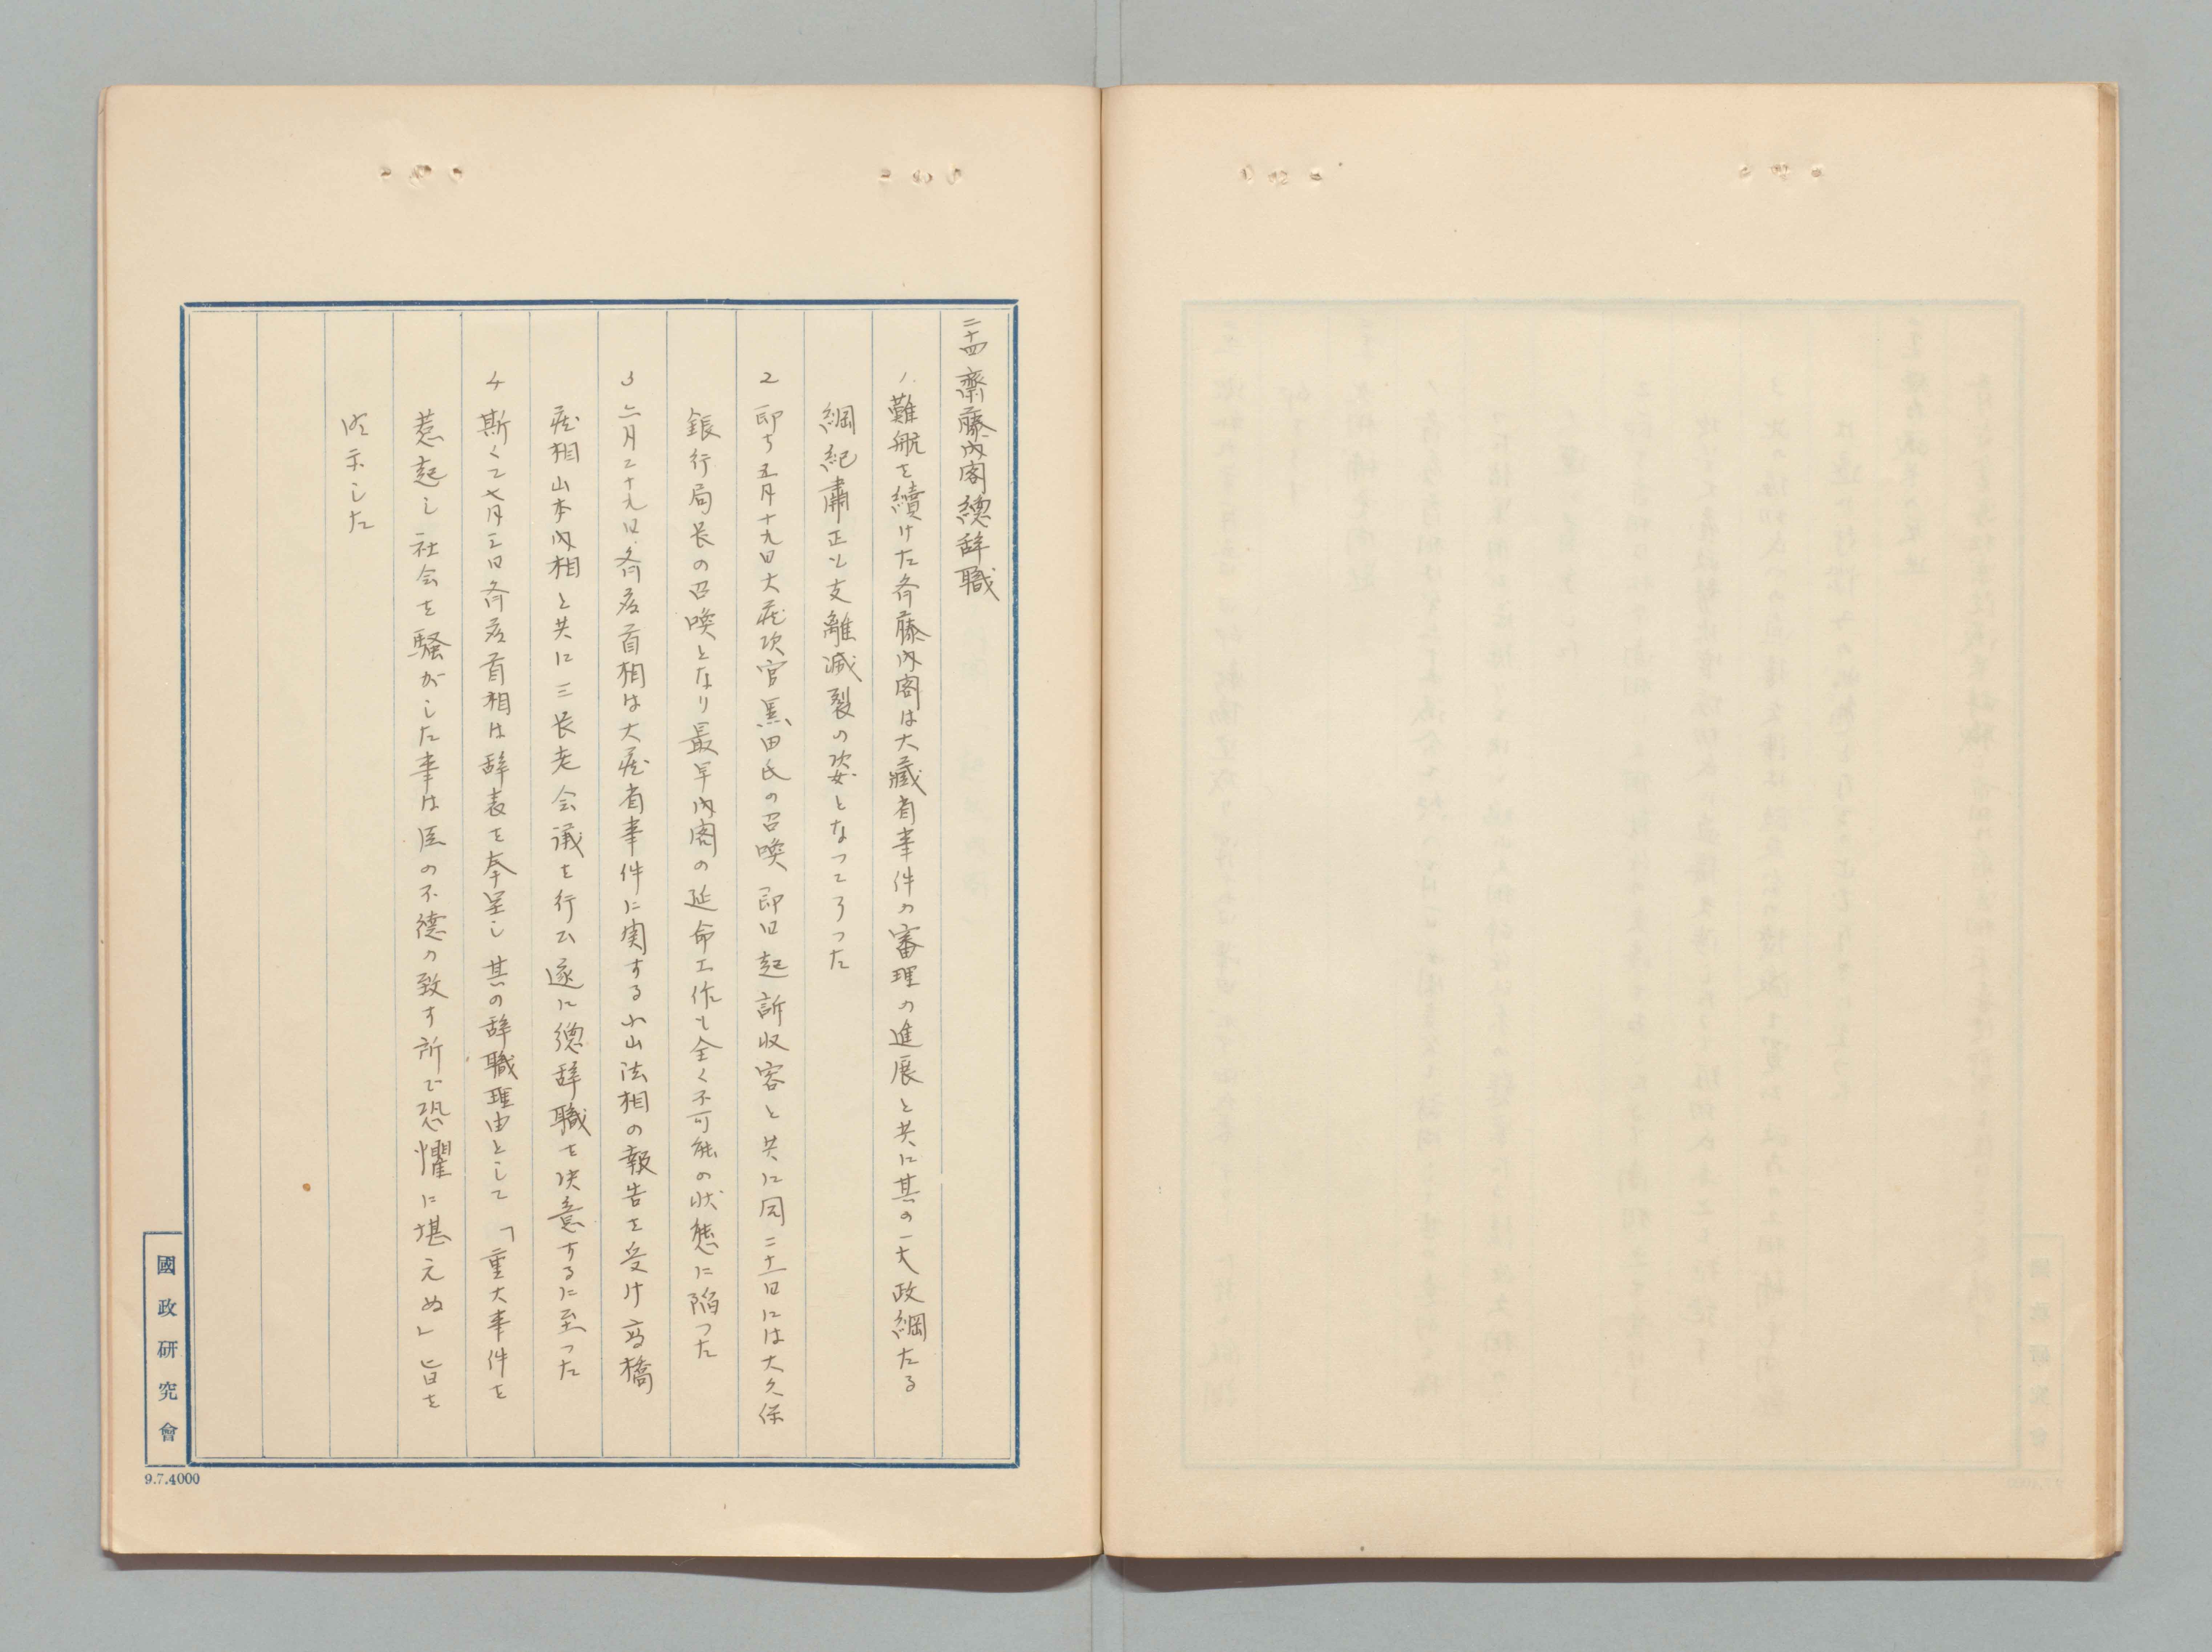 二十四 齋藤内閣總辞職
1. 難航を續けた斉藤内閣は大藏省事件の審理の進展と共に其の一大政綱たる
綱紀肅正も支離滅裂の姿となつてゐつた
2 即ち五月十九日大蔵次官黒田氏の召喚 即日起訴収容と共に同二十一日には大久保
銀行局長の召喚となり最早内閣の延命工作も全く不可能の状態に陥つた
3 六月二十九日斉藤首相は大蔵省事件に関する小山法相の報告を受け高橋
蔵相山本内相と共に三長老会議を行ひ遂に總辞職を決意するに至つた
4 斯くて七月三日斉藤首相は辞表を奉呈し其の辞職理由として「重大事件を
惹起し社会を騒がした事は臣の不徳の致す所で恐懼に堪えぬ」旨を
明示した
國政研究會
9.7.4000